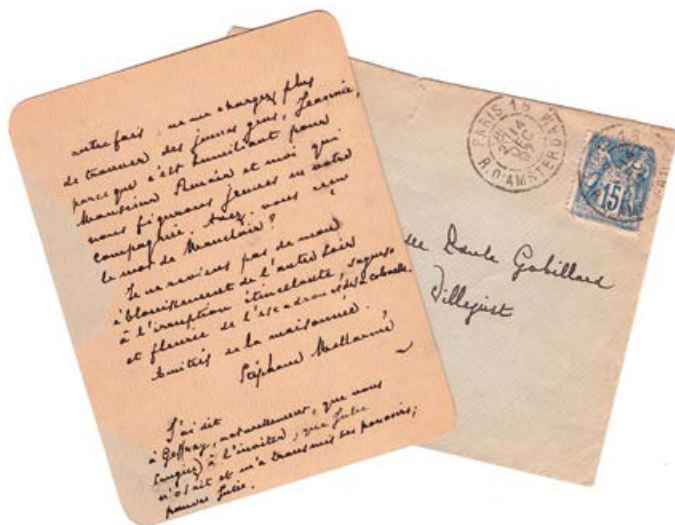 autre fois : ne me chargez plus
de trouver des jeunes gens, Jeannie,
parce que c'est humiliant pour
Monsieur Renoir et moi qui
nous figurons jeunes en votre
compagnie. Avez-vous reçu
le mot de Mauclair ?
Je ne reviens pas de mon
éblouissement de l'autre soir
à l'irruption étincelante, soyeuse
et fleurie de l'escadron et de sa colonelle.
Amitiés de la maisonnée.
Stéphane Mallarmé
J'ai dit
à Geffroy, naturellement, que vous
songiez à l'inviter, que Julie
n'osait et m'a transmis ses pouvoirs;
pauvre Julie.
PARIS 18
14
DEC
R. D'AMSTERDAM
15
lle Paule Gobillard
Villejust